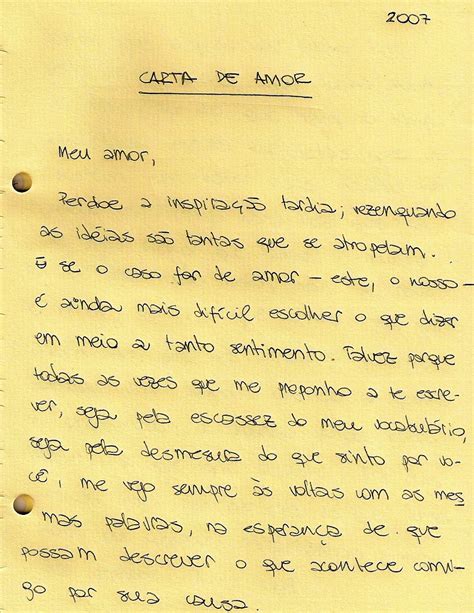 2007
CARTA DE AMOR
Meu amor,
Perdoe a inspiração tardia; vezenquando
as idéias são tantas que se atropelam.
E se o caso for de amor — este, o nosso —
é ainda mais difícil escolher o que dizer
em meio a tanto sentimento. Talvez porque
todas as vezes que me preponho a te escre-
ver, seja pela escassez do meu vocabulário,
seja pela desmesura do que sinto por vo-
cê, me vejo sempre às voltas com as mes
mas palavras, na esperança de que
possam descrever o que acontece comi-
go por sua causa.